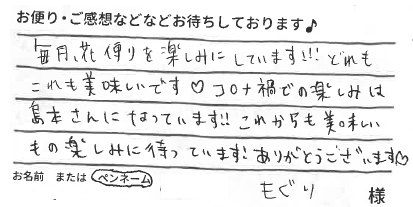 お便り・ご感想などなどお待ちしております♪
毎月、花便りを楽しみにしています!!! どれも
これも美味いです♡ コロナ禍での楽しみは
島本さんになっています!! これからも美味しい
もの楽しみに待っています! ありがとうございます♡
お名前 または ペンネーム
もぐり 様